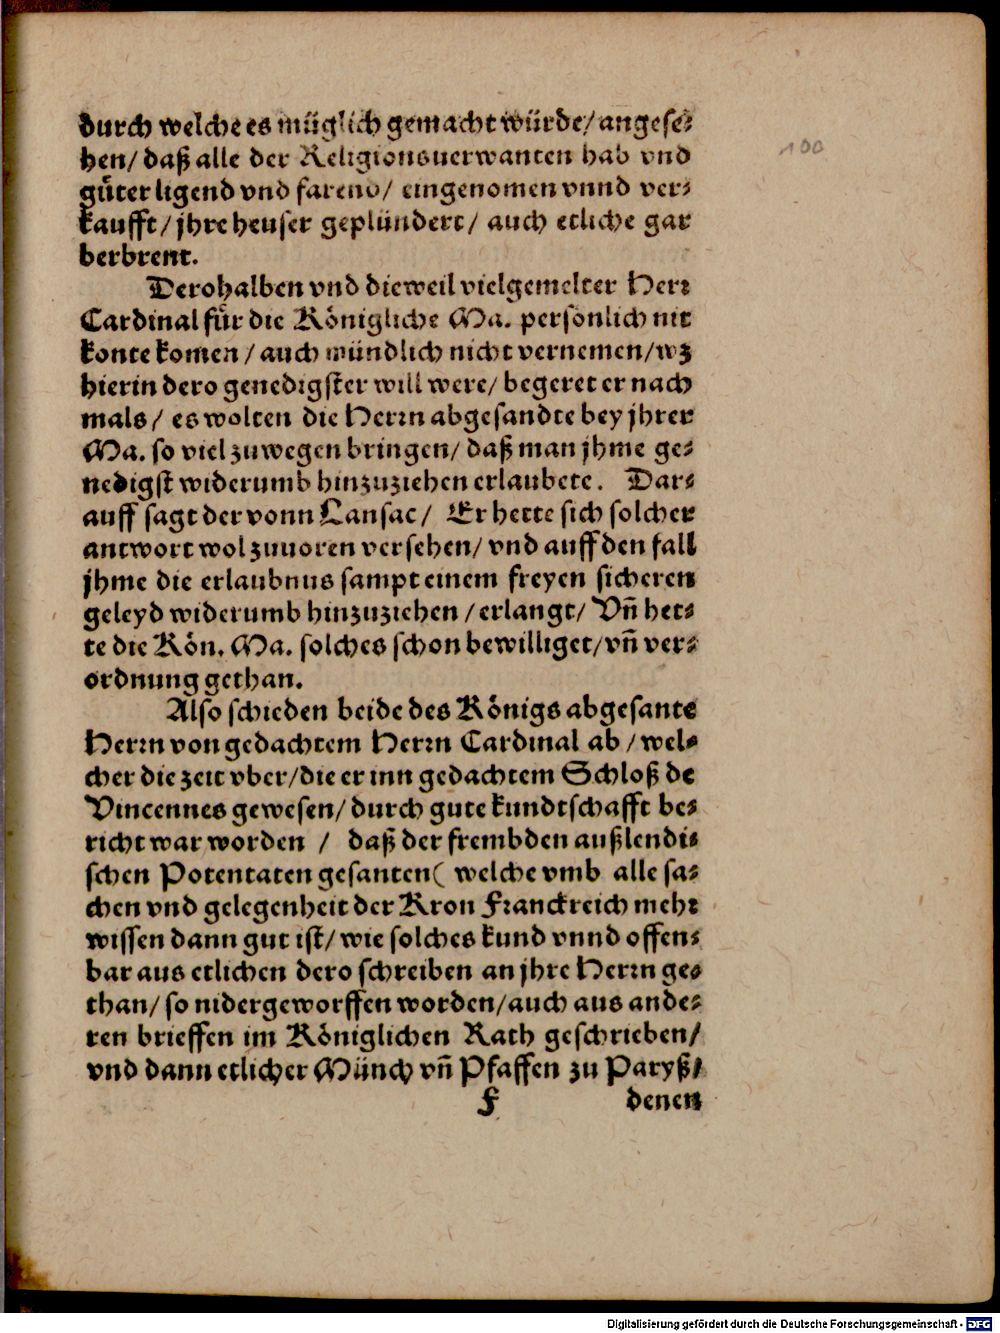 durch welche es müglich gemacht würde/ angese⸗
hen/ daß alle der Religionsuerwanten hab vnd
güter ligend vnd farend/ eingenomen vnnd ver⸗
kaufft/ jhre heuser geplündert/ auch etliche gar
berbrent.
Derohalben vnd dieweil vielgemelter Herr
Cardinal für die Königliche Ma. persönlich nit
konte komen / auch mündlich nicht vernemen/ wz
hierin dero genedigster will were/ begeret er nach
mals/ es wolten die Herrn abgesandte bey jhrer
Ma. so viel zuwegen bringen/ daß man jhme ge⸗
nedigst widerumb hinzuziehen erlaubete. Dar⸗
auff sagt der vonn Lansac/ Er hette sich solcher
antwort wol zuuoren versehen/ vnd auff den fall
jhme die erlaubnus sampt einem freyen sicheren
geleyd widerumb hinzuziehen / erlangt/ Vñ het⸗
te die Kön. Ma. solches schon bewilliget/ vñ ver⸗
ordnung gethan.
Also schieden beide des Königs abgesante
Herrn von gedachtem Herrn Cardinal ab / wel⸗
cher die zeit vber/ die er inn gedachtem Schloß de
Vincennes gewesen/ durch gute kundtschafft be⸗
richt war worden / daß der frembden außlendi⸗
schen Potentaten gesanten( welche vmb alle sa⸗
chen vnd gelegenheit der Kron Franckreich mehr
wissen dann gut ist/ wie solches kund vnnd offen⸗
bar aus etlichen dero schreiben an jhre Herrn ge⸗
than/ so nidergeworffen worden/ auch aus ande⸗
ren brieffen im Königlichen Rath geschrieben/
vnd dann etlicher Münch vñ Pfaffen zu Paryß/
F denen
100
Digitalisierung gefördert durch die Deutsche Forschungsgemeinschaft - DFG